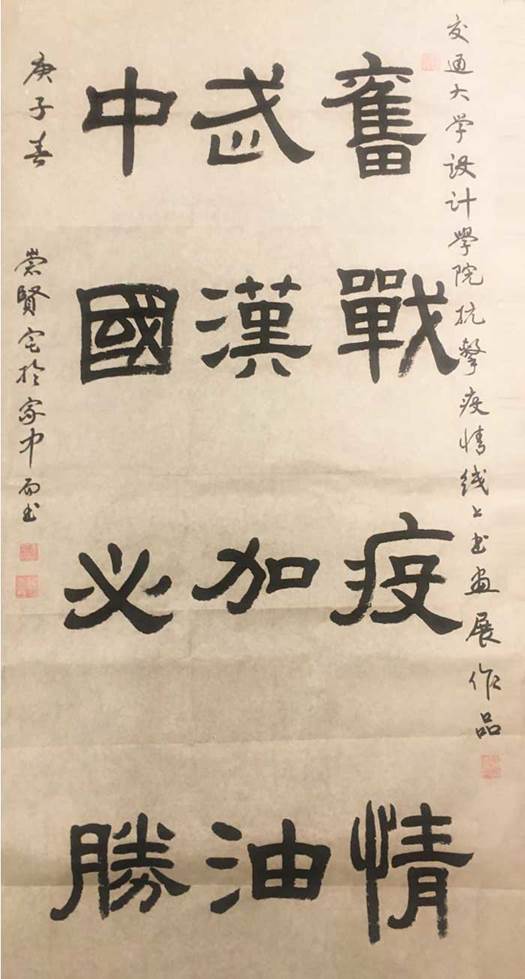 交通大学设计學院抗擊疫情线上书画展作品
奮戰疫情
武漢加油
中國必勝
庚子春 崇賢宅於家中而书